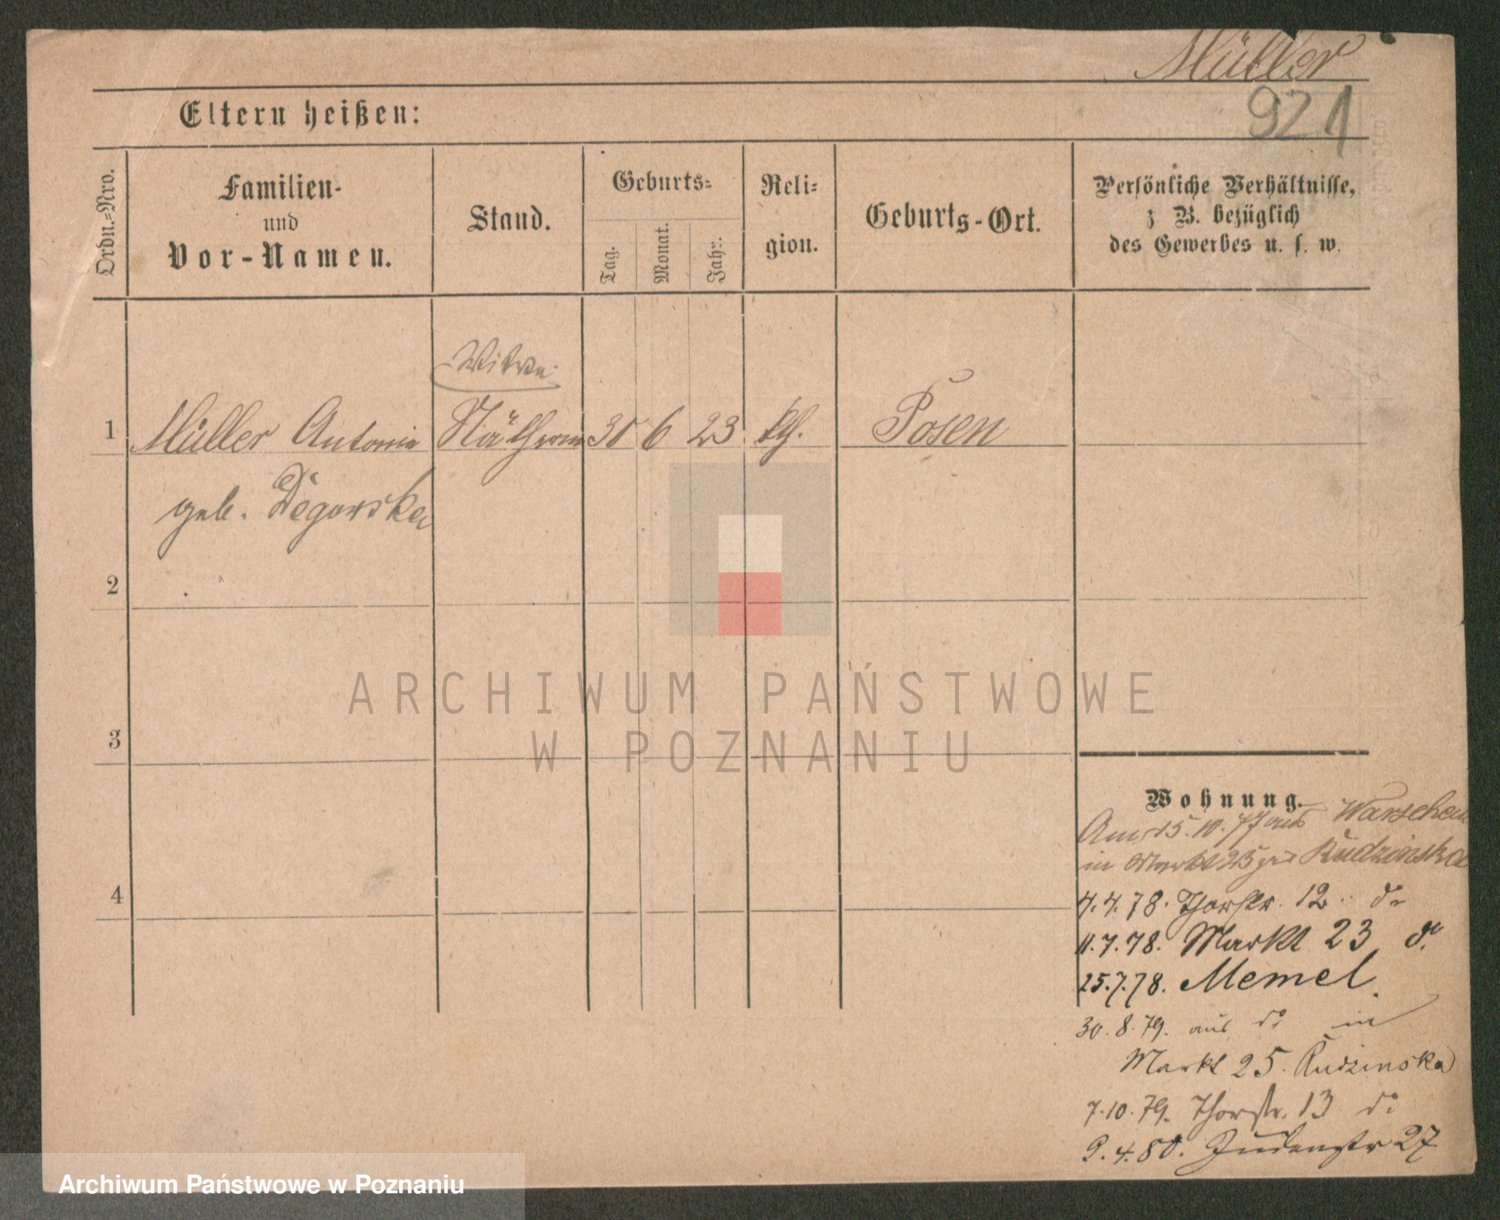 Müller
921
Eltern heißen:
Ordn.-Nro.
Familien-
und
Vor-Namen.
Stand.
Geburts-
Tag.
Monat.
Jahr.
Reli-
gion.
Geburts-Ort.
Persönliche Verhältnisse,
z. B. bezüglich
des Gewerbes u. s. w.
Witwe
1 Müller Antonie Nätherin 30 6 23 kth. Posen
geb. Degorska
2
3
4
ARCHIWUM PAŃSTWOWE
W POZNANIU
Wohnung.
Am 15.10.77 aus Warschau
in Markt 25 bei Rudzinska
4.4.78. Thorstr. 12 do
11.7.78. Markt 23 do
25.7.78. Memel
30.8.79. aus do in
Markt 25. Rudzinska
7.10.79. Thorstr. 13 do
9.4.80. Judenstr 27
Archiwum Państwowe w Poznaniu